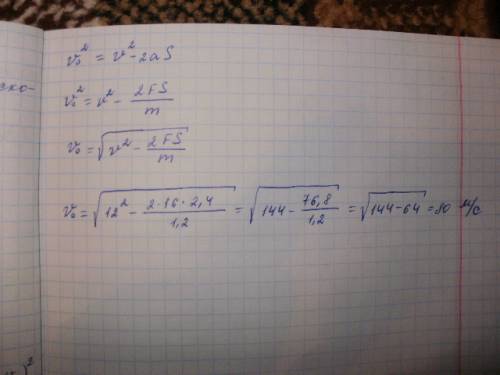 ско-
v₀² = v² - 2aS
v₀² = v² - 2FS/m
v₀ = √(v² - 2FS/m)
v₀ = √(12² - 2·16·2,4/1,2) = √(144 - 76,8/1,2) = √(144-64) = 80 м/с
)²